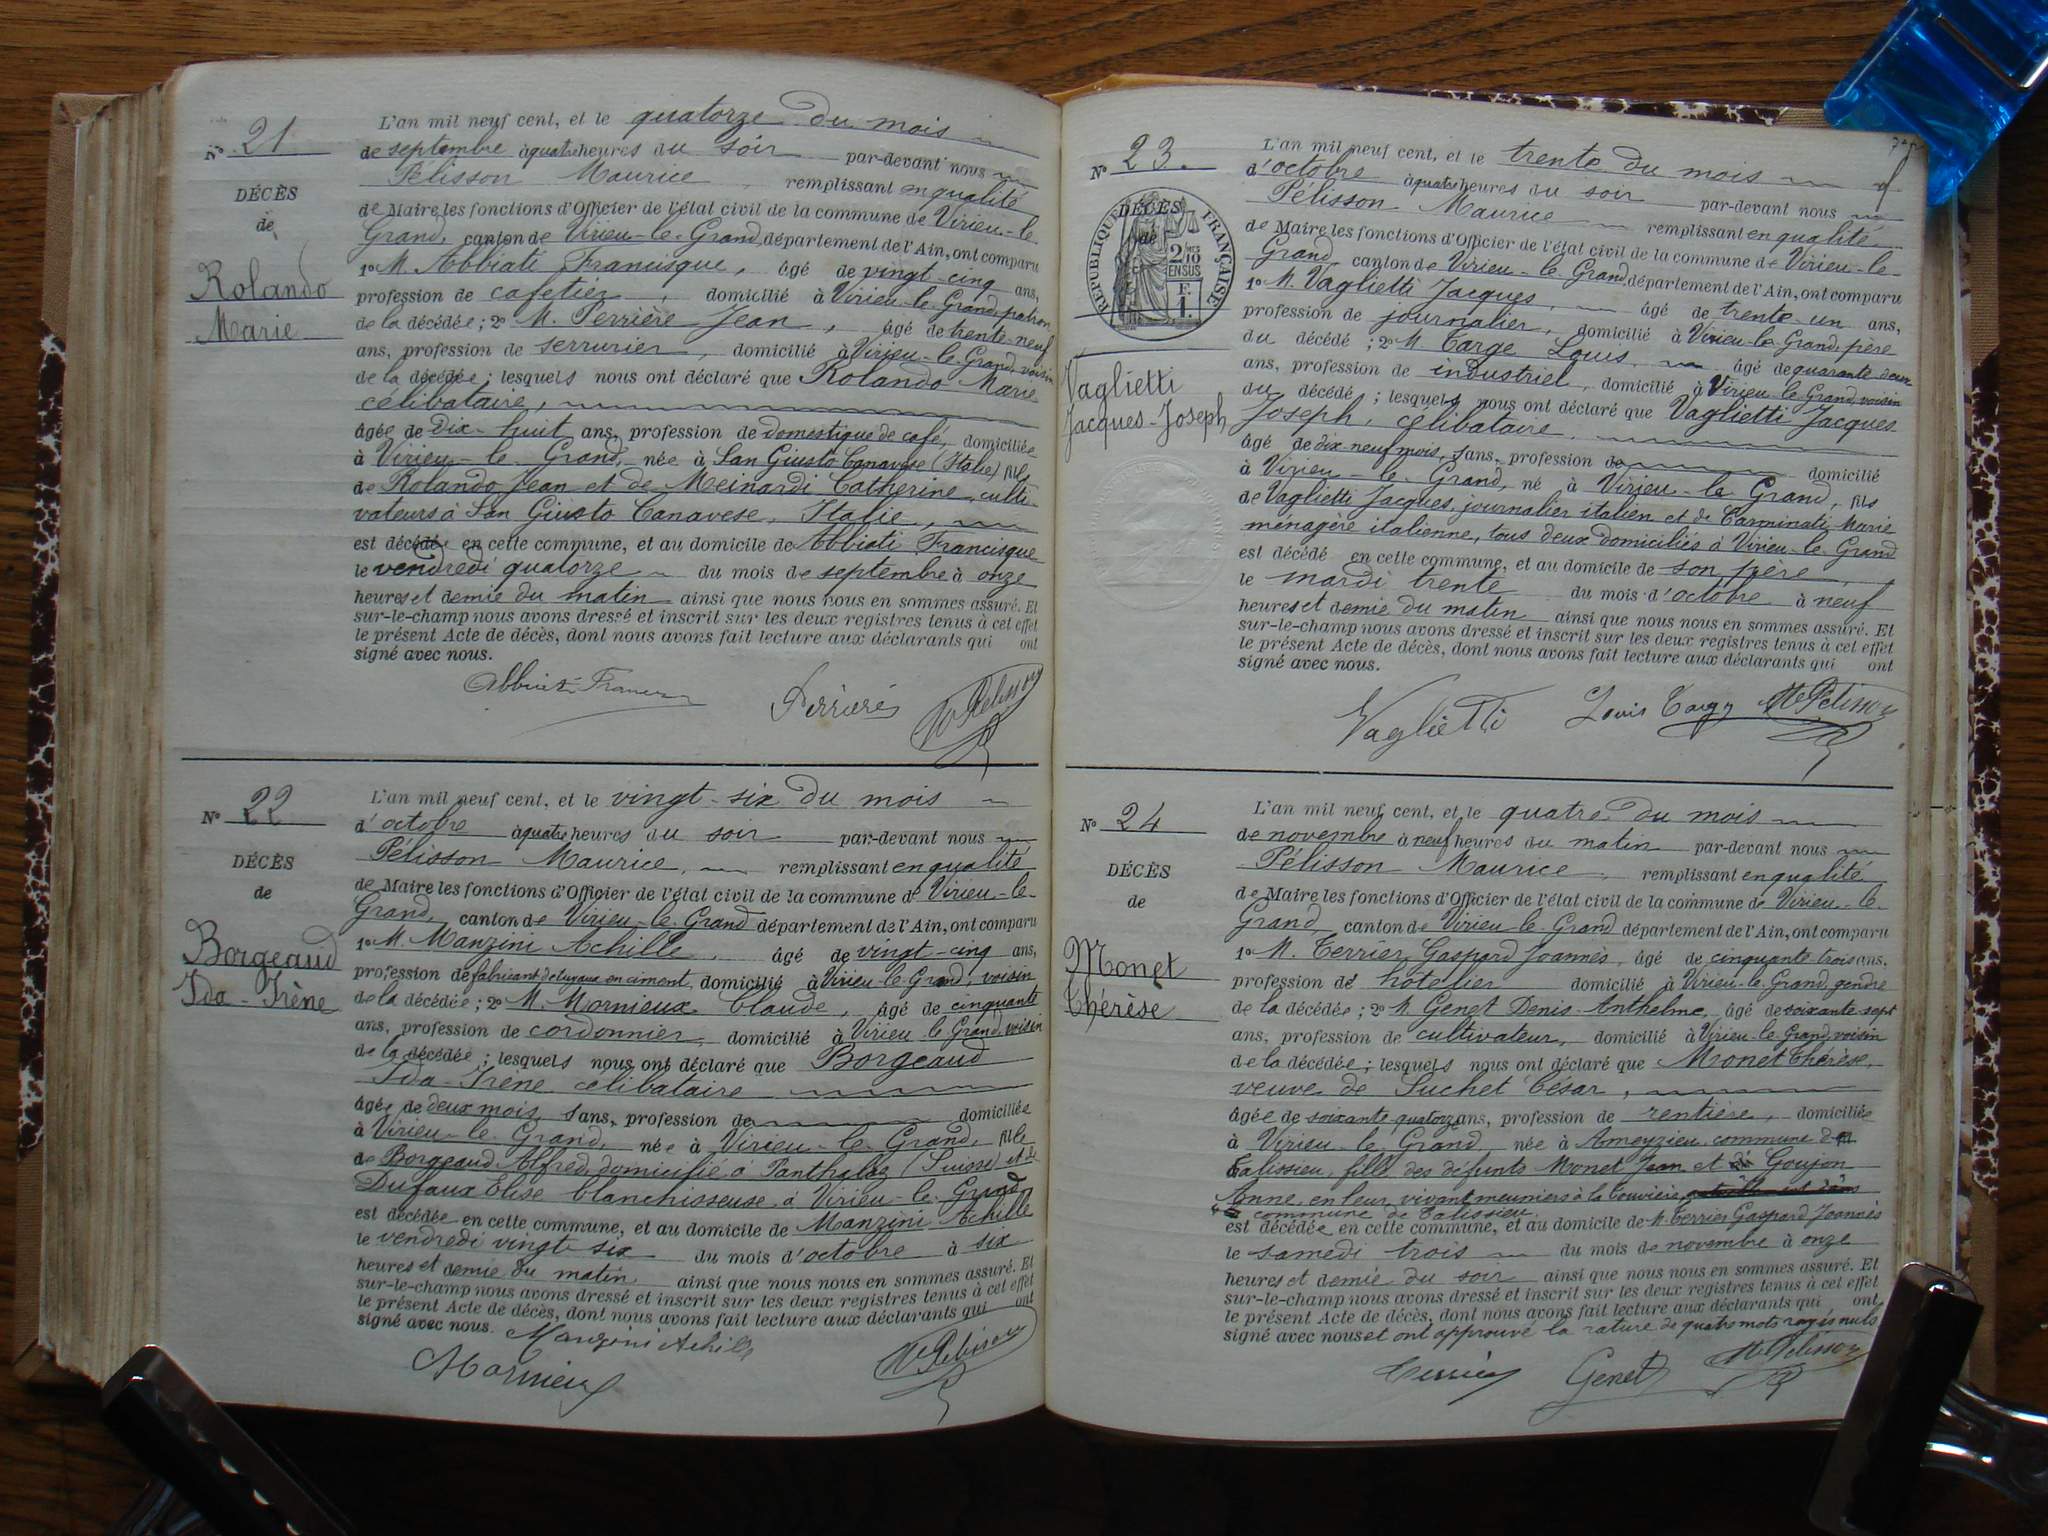 N° 21
DÉCÈS
de
Rolando
Marie
L'an mil neuf cent, et le quatorze du mois
de septembre à quatre heures du soir par-devant nous
Pélisson Maurice, remplissant en qualité
de Maire les fonctions d'Officier de l'état civil de la commune de Virieu-le-
Grand, canton de Virieu-le-Grand, département de l'Ain, ont comparu
1° M. Abbiati Francisque, âgé de vingt-cinq ans,
profession de cafetier, domicilié à Virieu-le-Grand, patron
de la décédée; 2° M. Perrière Jean, âgé de trente-neuf
ans, profession de serrurier, domicilié à Virieu-le-Grand, voisin
de la décédée; lesquels nous ont déclaré que Rolando Marie
célibataire,
âgée de dix-huit ans, profession de domestique de café, domiciliée
à Virieu-le-Grand, née à San Giusto Canavese (Italie) fille
de Rolando Jean et de Meinardi Catherine, culti-
vateurs à San Giusto Canavese, Italie,
est décédée en cette commune, et au domicile de Abbiati Francisque
le vendredi quatorze du mois de septembre à onze
heures et demie du matin ainsi que nous nous en sommes assuré. Et
sur-le-champ nous avons dressé et inscrit sur les deux registres tenus à cet effet
le présent Acte de décès, dont nous avons fait lecture aux déclarants qui ont
signé avec nous.
Perrière M Pélisson
N° 22
DÉCÈS
de
Borgeaud
Ida-Irène
L'an mil neuf cent, et le vingt-six du mois
d'octobre à quatre heures du soir par-devant nous
Pélisson Maurice, remplissant en qualité
de Maire les fonctions d'Officier de l'état civil de la commune de Virieu-le-
Grand, canton de Virieu-le-Grand département de l'Ain, ont comparu
1° M. Manzini Achille, âgé de vingt-cinq ans,
profession de fabricant de tuyaux en ciment, domicilié à Virieu-le-Grand, voisin
de la décédée; 2° M. Mornieux Claude, âgé de cinquante
ans, profession de cordonnier, domicilié à Virieu-le-Grand, voisin
de la décédée; lesquels nous ont déclaré que Borgeaud
Ida-Irène célibataire
âgée de deux mois, sans, profession de domiciliée
à Virieu-le-Grand, née à Virieu-le-Grand, fille
de Borgeaud Alfred, domicilié à Panthalaz (Suisse) et de
Dufaux Elise blanchisseuse à Virieu-le-Grand
est décédée en cette commune, et au domicile de Manzini Achille
le vendredi vingt-six du mois d'octobre à six
heures et demie du matin ainsi que nous nous en sommes assuré. Et
sur-le-champ nous avons dressé et inscrit sur les deux registres tenus à cet effet
le présent Acte de décès, dont nous avons fait lecture aux déclarants qui ont
signé avec nous. Manzini Achille
Mornieux M Pélisson
N° 23.
DÉCÈS
de
RÉPUBLIQUE FRANÇAISE
2/10 EN SUS
F. 1.
Vaglietti
Jacques-Joseph
L'an mil neuf cent, et le trente du mois
d'octobre à quatre heures du soir par-devant nous
Pélisson Maurice remplissant en qualité
de Maire les fonctions d'Officier de l'état civil de la commune de Virieu-le-
Grand, canton de Virieu-le-Grand, département de l'Ain, ont comparu
1° M. Vaglietti Jacques, âgé de trente-un ans,
profession de journalier, domicilié à Virieu-le-Grand, père
du décédé; 2° M. Targe Louis, âgé de quarante-deux
ans, profession de industriel, domicilié à Virieu-le-Grand, voisin
du décédé; lesquels nous ont déclaré que Vaglietti Jacques
Joseph, célibataire,
âgé de dix neuf mois, sans, profession de domicilié
à Virieu-le-Grand, né à Virieu-le-Grand, fils
de Vaglietti Jacques, journalier italien et de Carminati Marie
ménagère italienne, tous deux domiciliés à Virieu-le-Grand
est décédé en cette commune, et au domicile de son père,
le mardi trente du mois d'octobre à neuf
heures et demie du matin ainsi que nous nous en sommes assuré. Et
sur-le-champ nous avons dressé et inscrit sur les deux registres tenus à cet effet
le présent Acte de décès, dont nous avons fait lecture aux déclarants qui ont
signé avec nous.
Vaglietti Louis Targe M Pélisson
N° 24
DÉCÈS
de
Monet
Thérèse
L'an mil neuf cent, et le quatre du mois
de novembre à neuf heures du matin par-devant nous
Pélisson Maurice, remplissant en qualité
de Maire les fonctions d'Officier de l'état civil de la commune de Virieu-le-
Grand, canton de Virieu-le-Grand département de l'Ain, ont comparu
1° M. Terrier Gaspard Joannès, âgé de cinquante trois ans,
profession de hôtelier domicilié à Virieu-le-Grand, gendre
de la décédée; 2° M. Genet Denis-Anthelme, âgé de soixante-sept
ans, profession de cultivateur, domicilié à Virieu-le-Grand, voisin
de la décédée; lesquels nous ont déclaré que Monet Thérèse,
veuve de Suchet César,
âgée de soixante quatorze ans, profession de rentière, domiciliée
à Virieu-le-Grand née à Ameyzieu commune de
Talissieu, fille des défunts Monet Jean et de Goujon
Anne, en leur vivant meuniers à la
commune de Talissieu.
est décédée en cette commune, et au domicile de M. Terrier Gaspard Joannès
le samedi trois du mois de novembre à onze
heures et demie du soir ainsi que nous nous en sommes assuré. Et
sur-le-champ nous avons dressé et inscrit sur les deux registres tenus à cet effet
le présent Acte de décès, dont nous avons fait lecture aux déclarants qui ont
signé avec nous et ont approuvé la rature de quatre mots rayés nuls
Terrier Genet M Pélisson